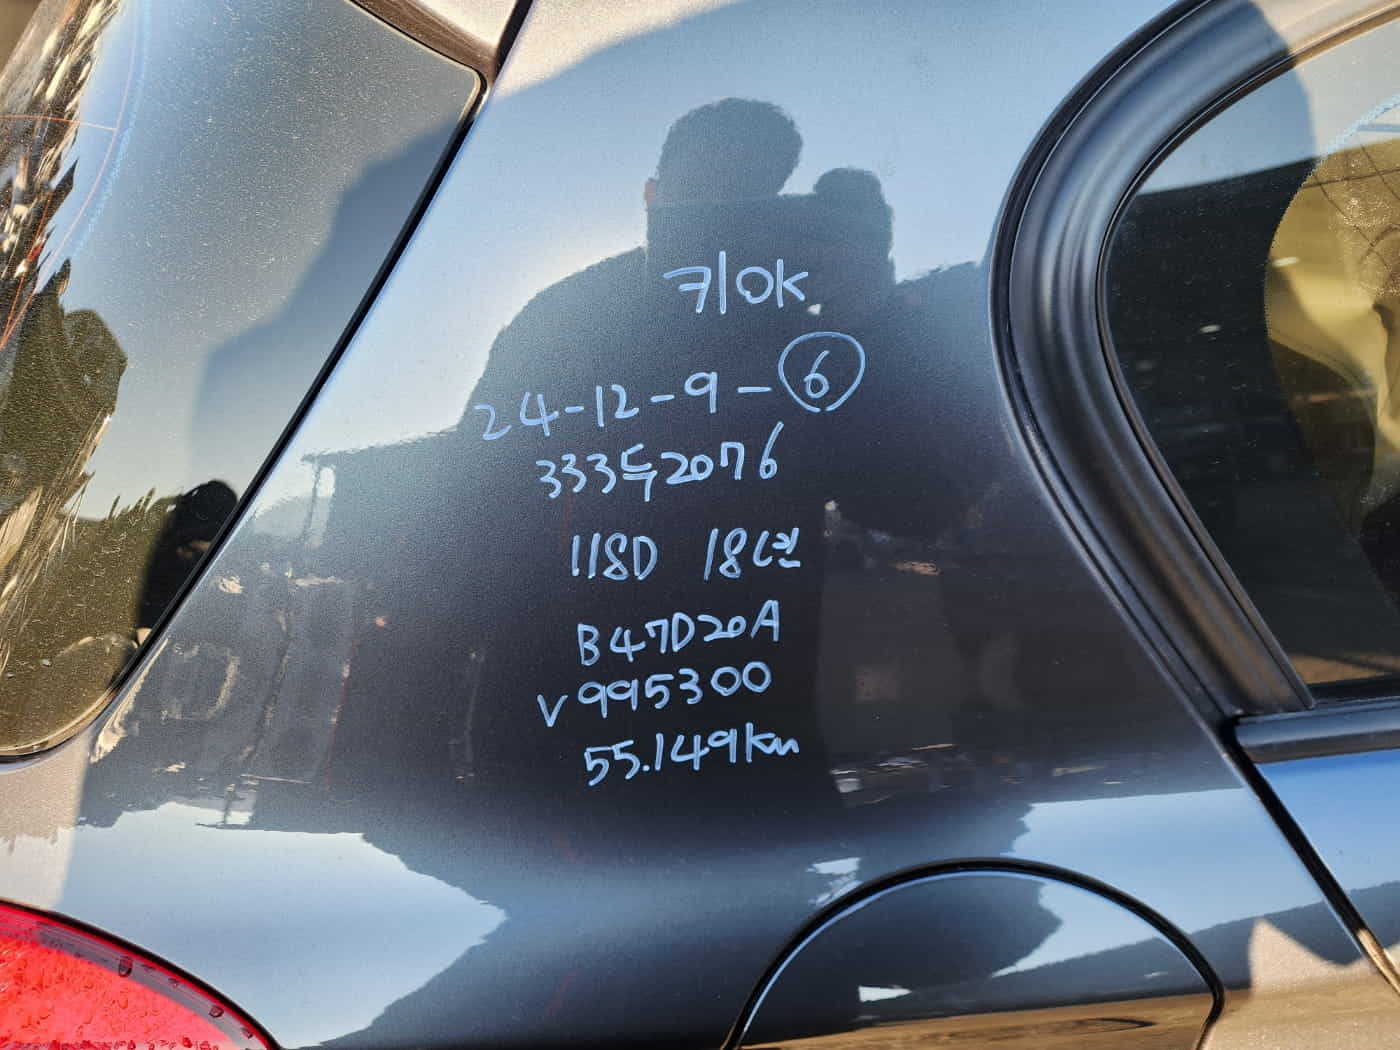 키OK
24-12-9-⑥
333두2076
118D 18년
B47D20A
V995300
55.149km